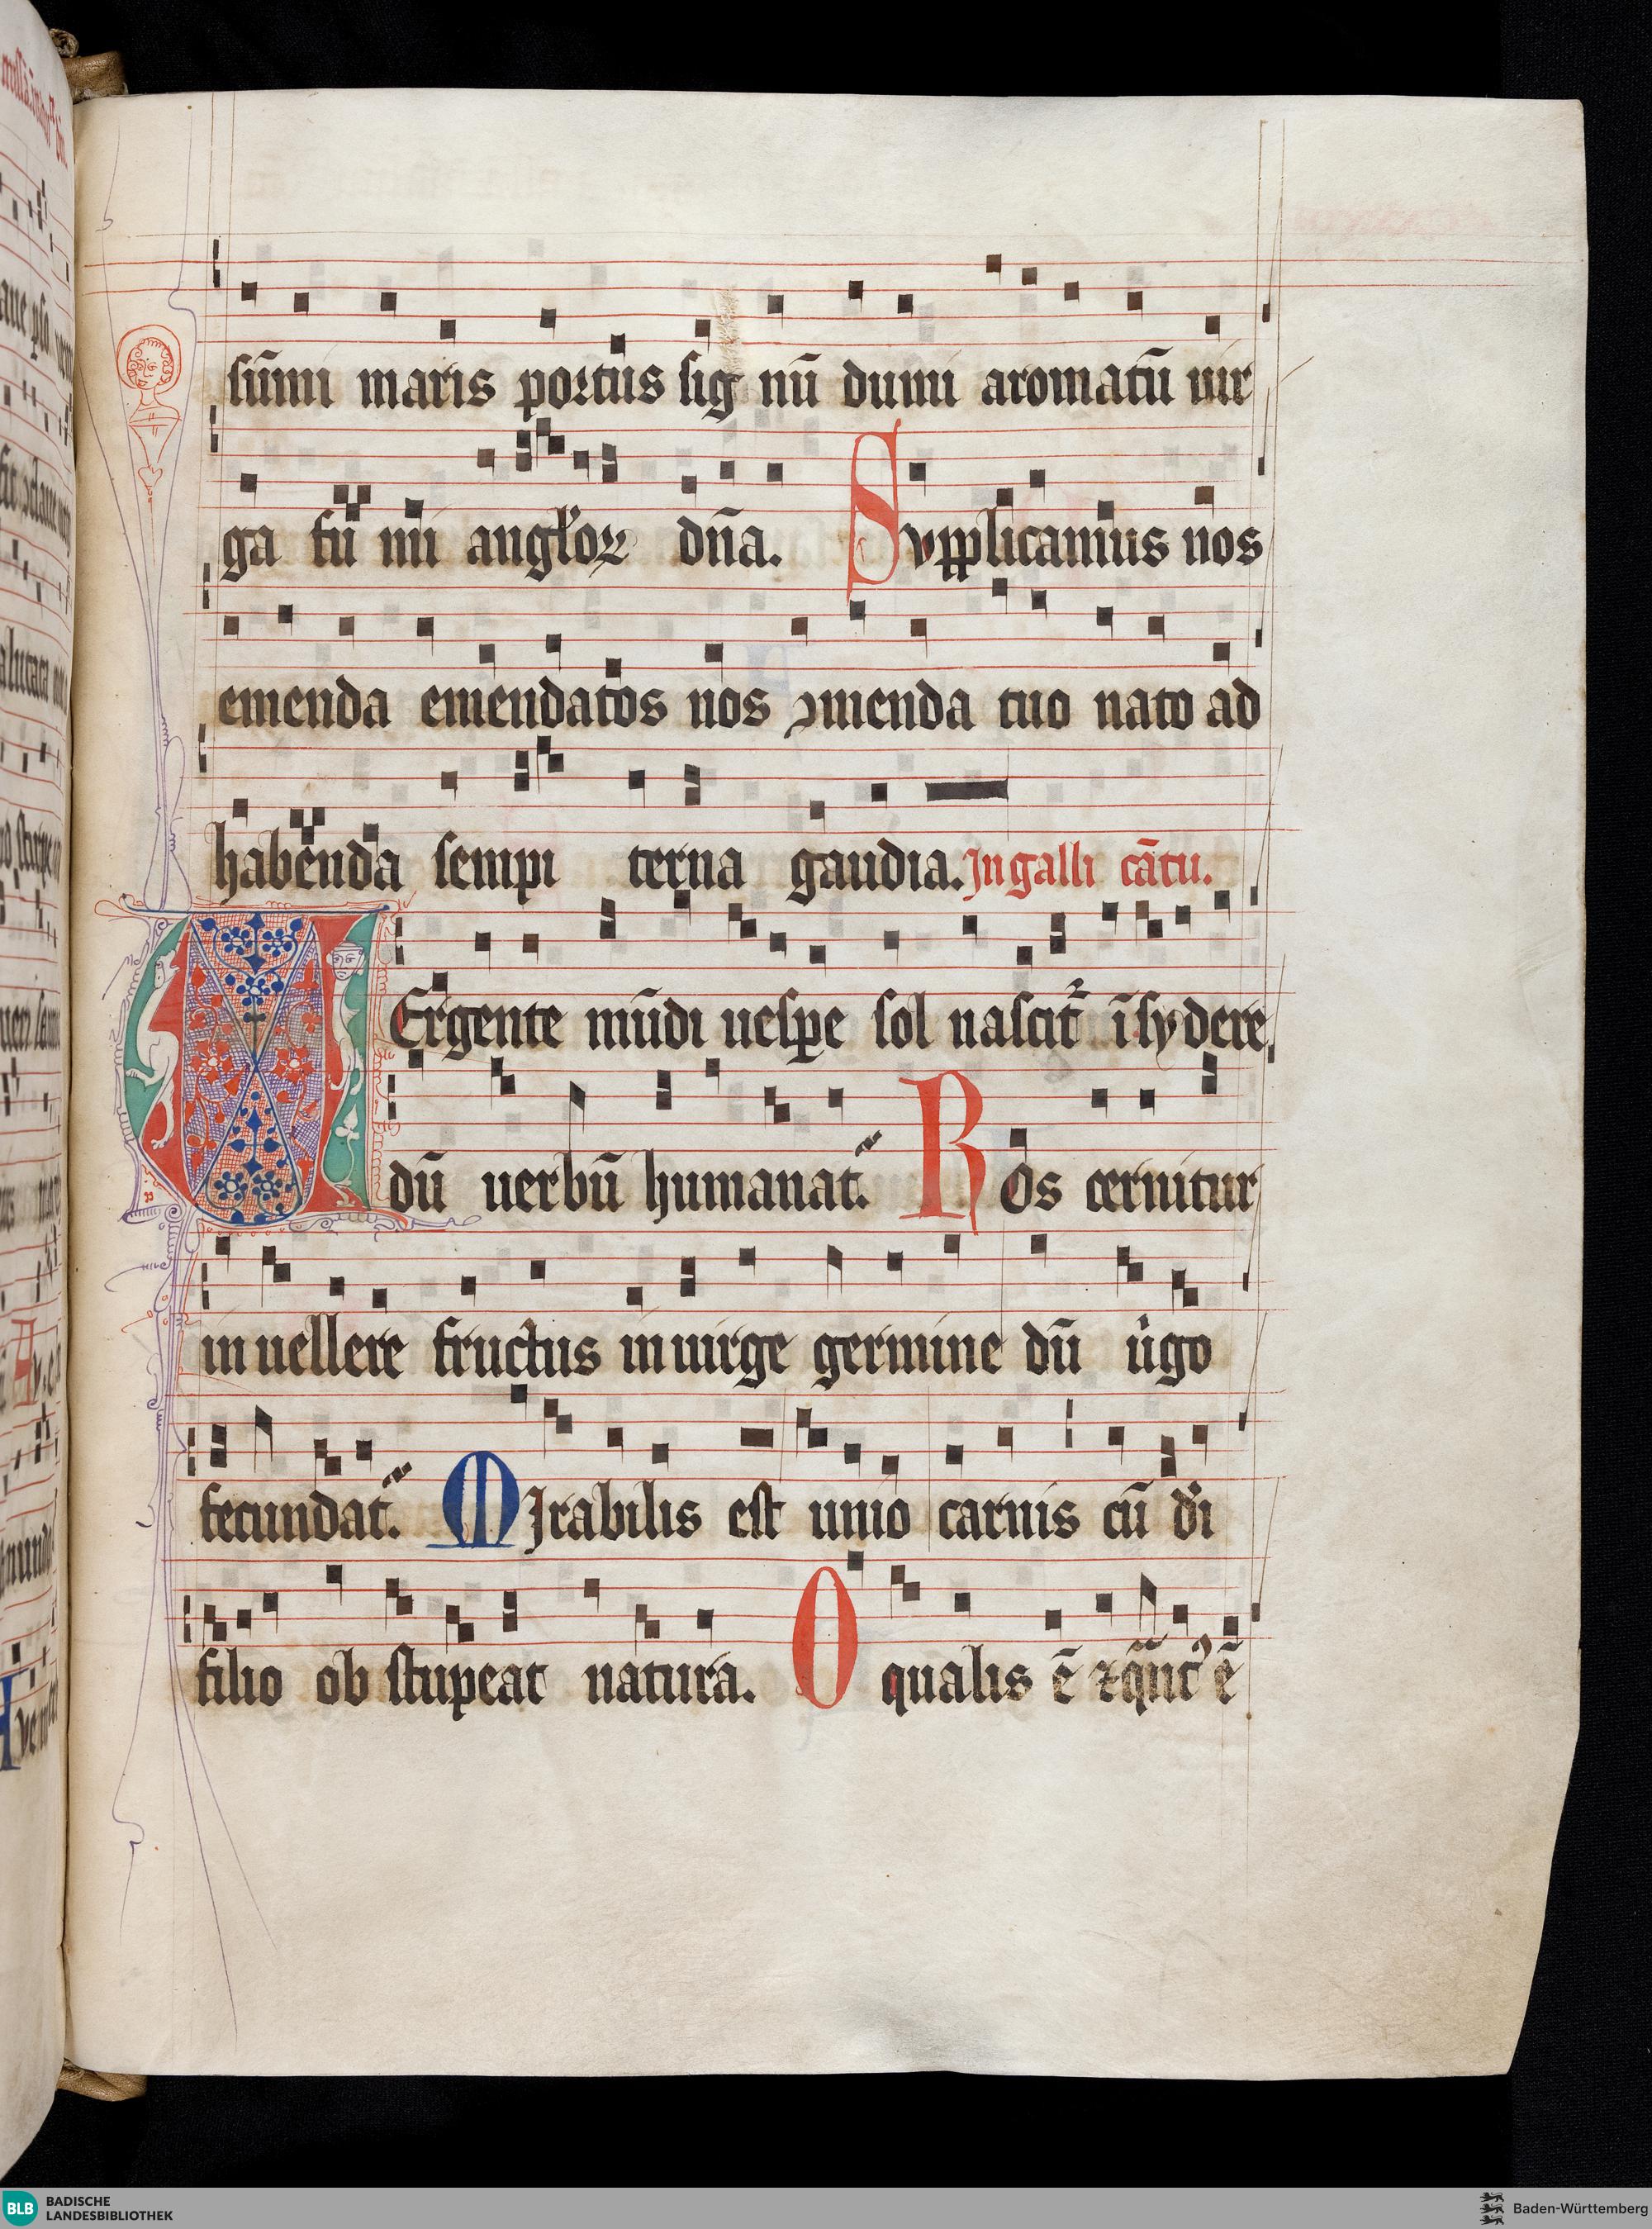 sūmi maris portus sig nū dumi aromatū uir
ga tu mi angl'oꝝ dn̄a. Svpplicamus nos
emenda emendatos nos ꝯmenda tuo nato ad
habenda sempi terna gaudia. In galli cātu.
VErgente mūdi uesꝑe sol nascit᷑ ī sydere
dū uerbū humanat᷑. Ros cernitur
in uellere fructus in uirge germine dū u̍go
fecundat᷑. MIrabilis est unio carnis cū di
filio ob stupeat natura. O qualis ē ē
BLB BADISCHE LANDESBIBLIOTHEK
Baden-Württemberg